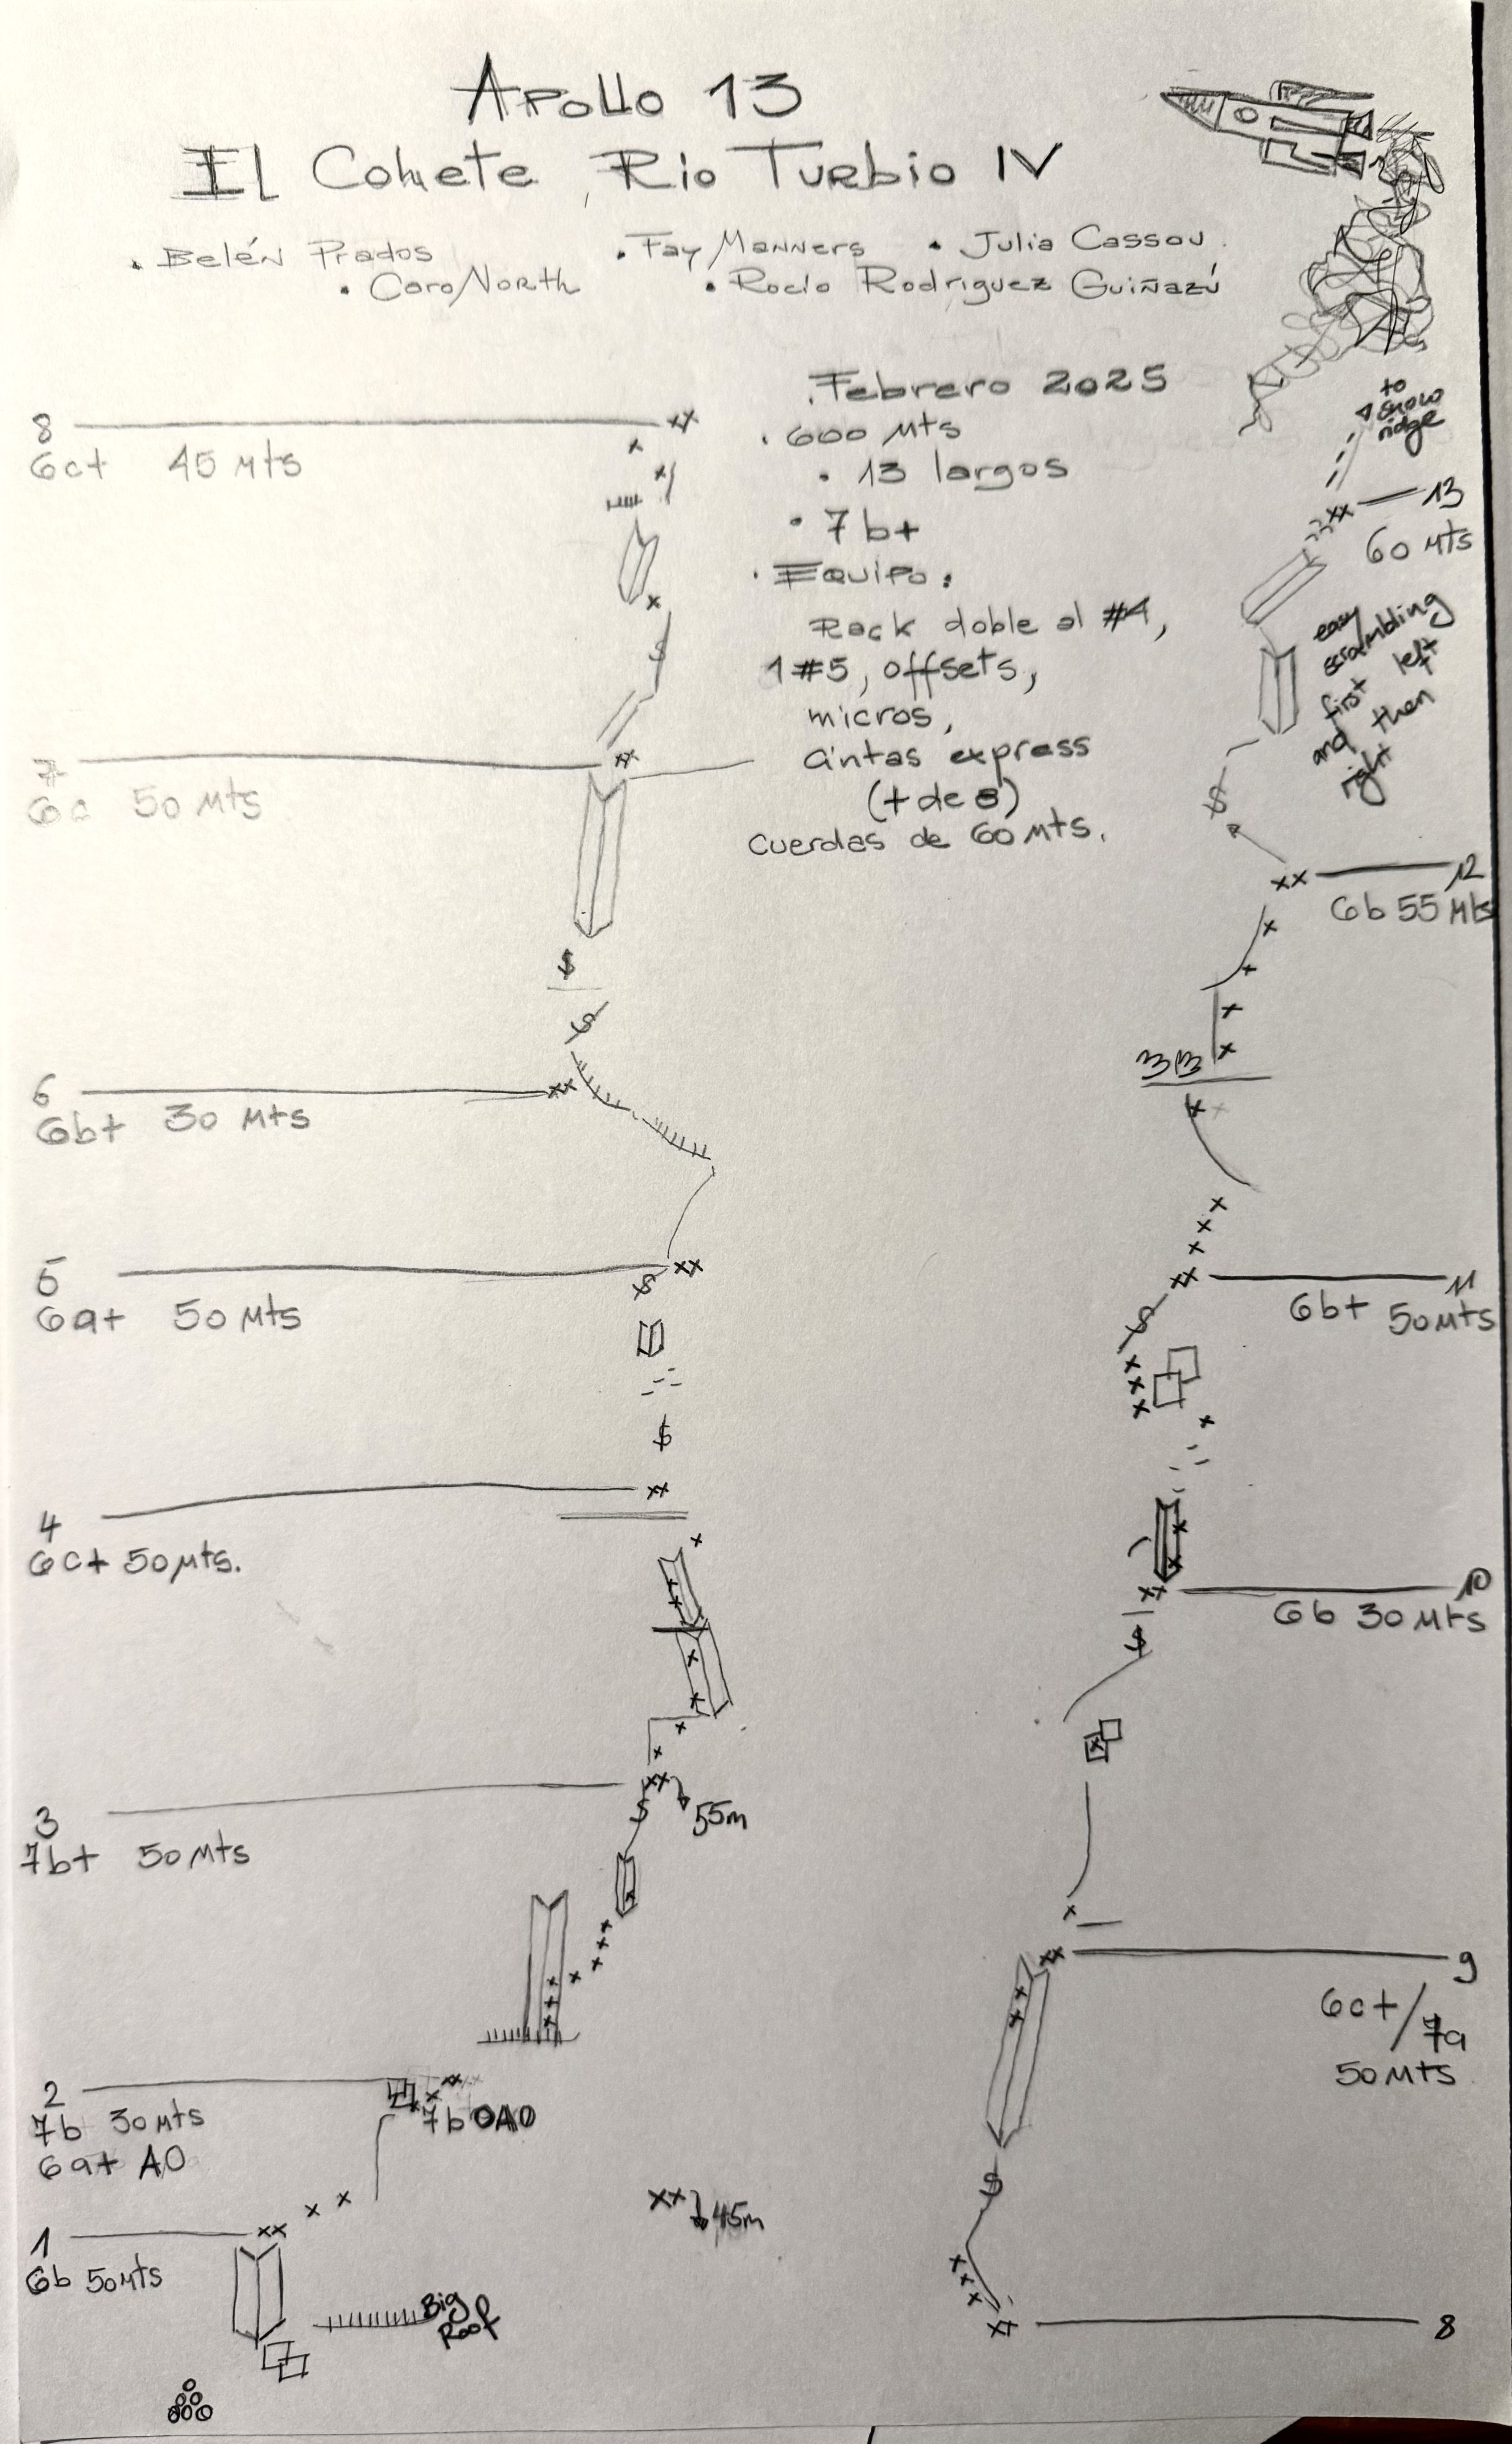 Apollo 13
El Cohete, Rio Turbio IV
• Belén Prados • Fay Manners • Julia Cassou
• Caro North • Rocío Rodriguez Guiñazú
Febrero 2025
• 600 Mts
• 13 largos
• 7b+
• Equipo:
Rack doble al #4,
1#5, offsets,
micros,
cintas express
(+ de 8)
cuerdas de 60 Mts.
8
6c+ 45 Mts
7
6c 50 Mts
6
6b+ 30 Mts
5
6a+ 50 Mts
4
6c+ 50 Mts.
3
7b+ 50 Mts
55m
2
7b 30 Mts
6a+ A0
7b O A0
45m
1
6b 50 Mts
Big
Roof
to
snow
ridge
13
60 Mts
easy
scrambling
first left
and then
right
12
6b 55 Mts
11
6b+ 50 Mts
10
6b 30 Mts
9
6c+/7a
50 Mts
8